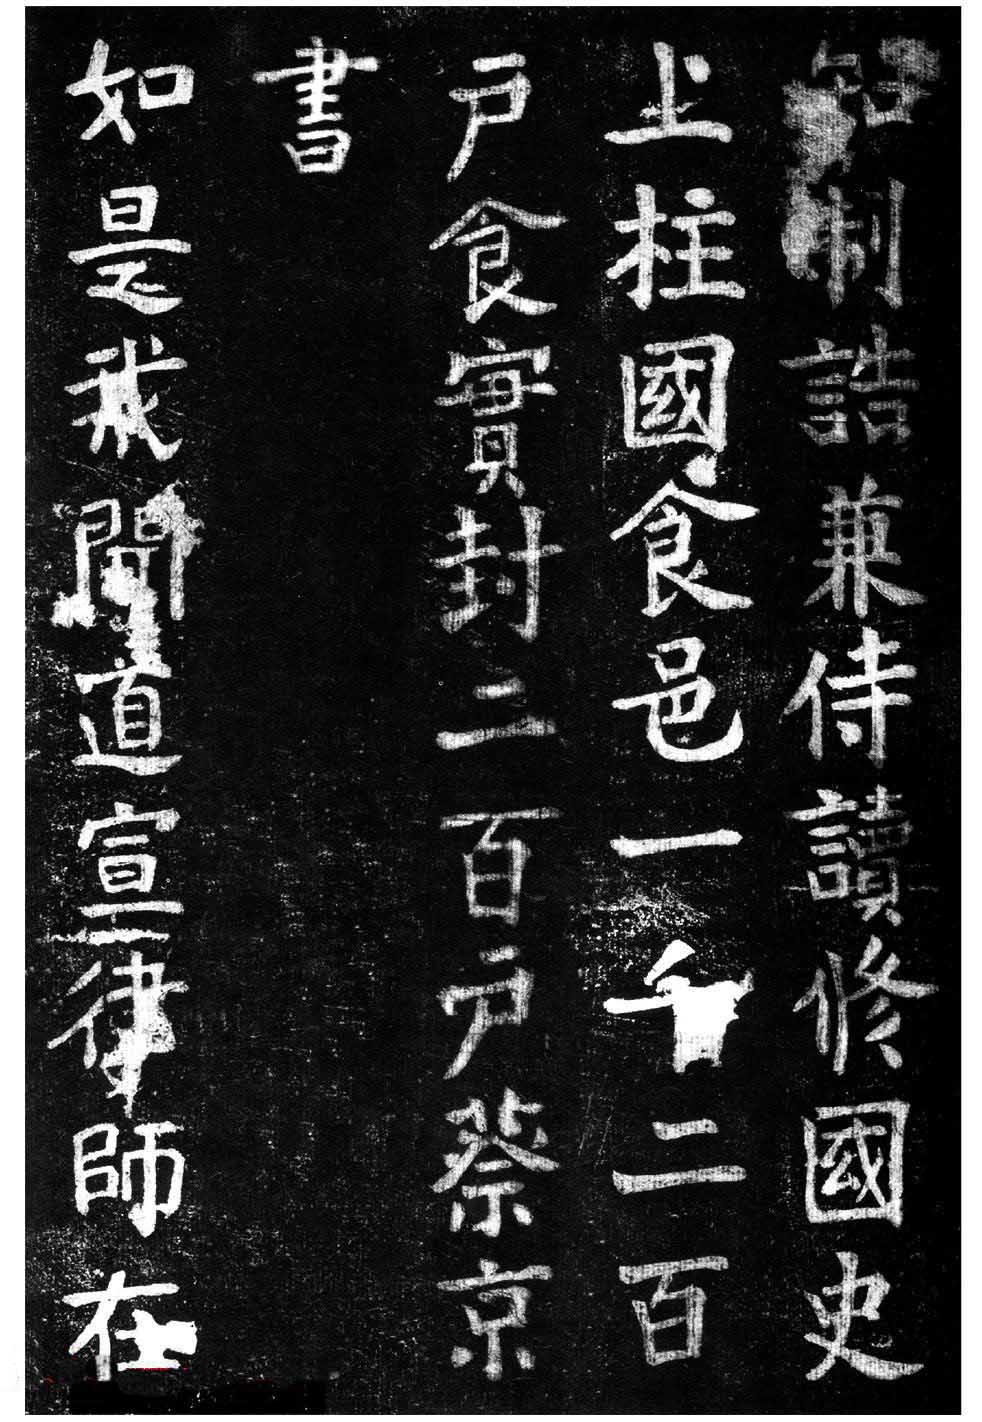 知制誥兼侍讀修國史
上柱國食邑一千二百
戶食實封二百戶蔡京
書
如是我聞道宣律師在